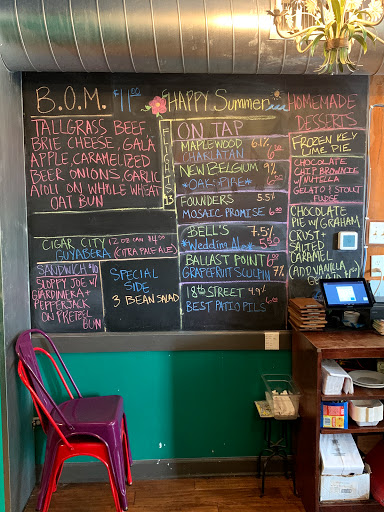 B.O.M. $11.00
TALLGRASS BEEF
BRIE CHEESE, GALA
APPLE, CARAMELIZED
BEER ONIONS, GARLIC
AIOLI ON WHOLE WHEAT
OAT BUN
CIGAR CITY 12 OZ CAN
GUYABERA (CITRA PALE ALE)
SANDWICH $10
SLOPPY JOE W/
GIARDINIERA +
PEPPERJACK
ON PRETZEL
BUN
SPECIAL
SIDE
3 BEAN SALAD
HAPPY Summer
FLIGHTS
ON TAP
MAPLEWOOD 6.1%
CHARLATAN 6.00
NEW BELGIUM 9%
*OAK SPIRE*
FOUNDERS 5.5%
MOSAIC PROMISE 6.00
BELL'S 7.5%
*Wedding Ale*
BALLAST POINT 6.00
GRAPEFRUIT SCULPIN 7%
18TH STREET 4.9%
BEST PATIO PILS 6.00
HOMEMADE
DESSERTS
FROZEN KEY
LIME PIE
CHOCOLATE
CHIP BROWNIE
W/NUTELLA
GELATO & STOUT
FUDGE
CHOCOLATE
PIE W/ GRAHAM
CRUST +
SALTED
CARAMEL
(ADD VANILLA